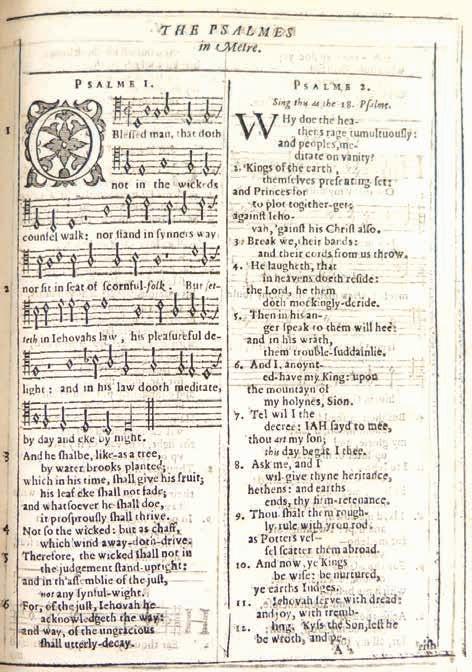 THE PSALMES
in Metre.
PSALME 1.
1
O Blessed man, that doth
not in the wickeds
counsel walk: nor stand in synners way
2
nor sit in seat of scornful-folk. But set-
teth in Iehovahs law, his pleasureful de-
light: and in his law dooth meditate,
by day and eke by night.
3
And he shalbe, like-as a tree,
by water brooks planted;
which in his time, shall give his fruit;
his leaf eke shall not fade;
and whatsoever he shall doe,
it prosprously shall thrive.
4
Not so the wicked: but as chaff,
which wind away-doth-drive.
5
Therefore, the wicked shall not in
the judgement stand-upright:
and in th'assemblie of the just,
not any synful-wight.
6
For, of the just, Iehovah he
acknowledgeth the way:
and way, of the ungracious
shall utterly-decay.
PSALME 2.
Sing this as the 18. Psalme.
WHy doe the hea-
thens rage tumultuously:
and peoples, me-
ditate on vanity?
2. Kings of the earth,
themselves presenting set:
and Princes for
to plot together-get;
against Ieho-
vah, 'gainst his Christ also.
3. Break we, their bands:
and their cords from us throw.
4. He laugheth, that
in heavens doeth reside:
the Lord, he them
doth mockingly-deride.
5. Then in his an-
ger speak to them will hee:
and in his wrath,
them trouble-suddainlie.
6. And I, anoynt-
ed-have my King: upon
the mountayn of
my holynes, Sion.
7. Tel wil I the
decree: IAH sayd to mee,
thou art my son;
this day begat I thee.
8. Ask me, and I
wil-give thyne heritance,
hethens: and earths
ends, thy firm-retenance.
9. Thou shalt them rough-
ly-rule with yron rod:
as Potters ves-
sel scatter them abroad.
10. And now, ye Kings
be wise: be nurtured,
ye earths Iudges.
11. Iehovah serve with dread:
and joy, with tremb-
12. ling. Kyss the Son, lest he
be wroth, and pe-
A